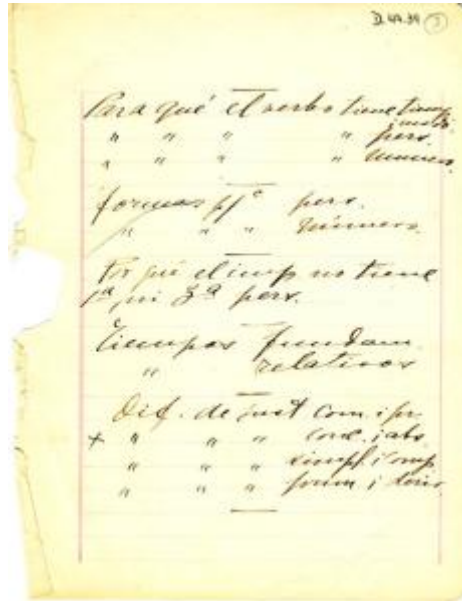 D.49.39 (3)
Para qué el verbo tiene tiemp
modo
" " " " pers.
" " " " número.
formas pª pers.
" " " " número.
Por qué el imp no tiene
1ª ni 3ª pers.
Tiempos fundam.
" relativos
Dif. de sust com. i pr.
+ " " " conc. i abs.
" " " simpl. i comp
" " " prim. i deriv.